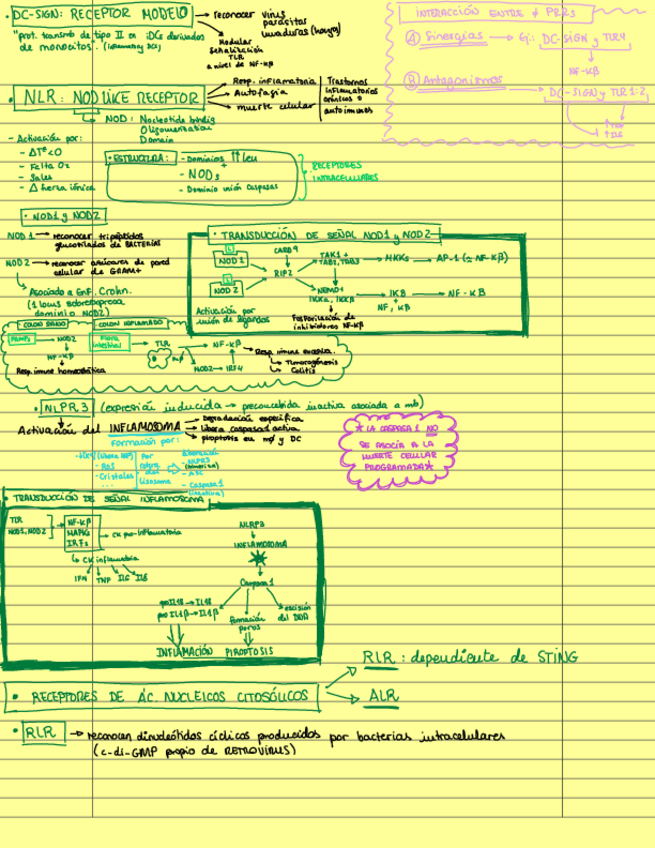 • DC-SIGN: RECEPTOR MODELO
"prot. transmb de tipo II en iDCs derivados
de monocitos". (inflamatory DCs)
→ reconocer virus
parásitos
levaduras (hongos)
Modular
Señalización
TLR
a nivel de NF-κβ
INTERACCIÓN ENTRE ≠ PRRs
Ⓐ Sinergias → Ej: DC-SIGN y TLR4
NF-κβ
Ⓑ Antagonismos
→ DC-SIGN y TLR 1-2
• NLR: NOD LIKE RECEPTOR
Resp. inflamatoria
Autofagia
muerte celular
Trastornos
inflamatorios
crónicos o
autoinmunes
NOD: Nucleotide binding
Oligomerization
Domain
- Activación por:
- ΔTª<0
- Falta O2
- Sales
- Δ fuerza iónica
• ESTRUCTURA:
- Dominios ↑↑ leu
+
- NODs
- Dominio unión caspasas
RECEPTORES
INTRACELULARES
• NOD1 y NOD2
NOD 1 → reconocer tripéptidos
glucosilados de BACTERIAS
NOD2 → reconocer azúcares de pared
celular de GRAM+
Asociado a Enf. Crohn.
(1 locus sobreexpresa
dominio NOD2)
• TRANSDUCCIÓN DE SEÑAL NOD1 y NOD2
L
NOD1
L
NOD2
CARD9
RIP2
TAK1 +
TAB2, TAB3
→ MKKs → AP-1 (≃ NF-κβ)
NEMO +
IKKα, IKKβ
→ IKB → NF-κβ
+
NF, κβ
Activación por
unión de ligandos
Fosforilación de
inhibidores NF-κβ
COLON SANO
COLON INFLAMADO
PAMPs → NOD2
NF-κβ
Resp. inmune homeostática
Flora
intestinal
→ TLR
mφ
NF-κβ
NOD2 → IRF4
Resp. inmune excesiva.
Tumorogénesis
Colitis
• NLPR.3 (expresión inducida → preconcebida inactiva asociada a mb)
Activación del INFLAMOSOMA
→ Degradación específica
→ Libera caspasa1 activa
→ piroptosis en mφ y DC
Formación por:
- ROS
- Cristales
...
Por
Lisosoma
NLPR3
- ASC
- Caspasa 1
(inactiva)
★ LA CASPASA 1 NO
SE ASOCIA A LA
MUERTE CELULAR
PROGRAMADA★
• TRANSDUCCIÓN DE SEÑAL INFLAMOSOMA
TLR
NOD1, NOD2
NF-κβ
MAPKs
IRFs
→ CK pro-inflamatoria
↳ CK inflamatoria
IFN TNF IL6 IL8
NLRP3
INFLAMOSOMA
Caspasa 1
proIL18 → IL18
pro IL1β → IL1β
formación
poros
escisión
del DNA
INFLAMACIÓN PIROPTOSIS
• RECEPTORES DE ÁC. NUCLEICOS CITOSÓLICOS
RLR : dependiente de STING
ALR
• RLR → reconocen dinucleótidos cíclicos producidos por bacterias intracelulares
(c-di-GMP propio de RETROVIRUS)